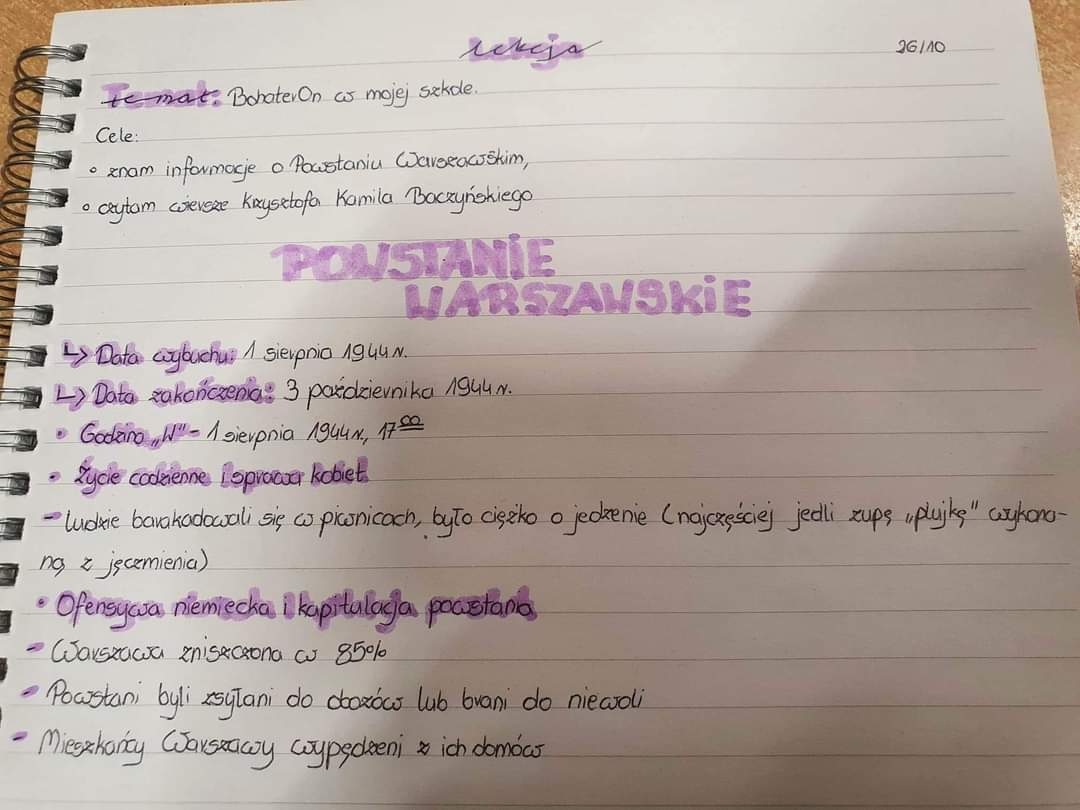 Lekcja 26/10
Temat: BohaterOn w mojej szkole.
Cele:
• znam informacje o Powstaniu Warszawskim,
• czytam wiersze Krzysztofa Kamila Baczyńskiego
POWSTANIE
WARSZAWSKIE
↳ Data wybuchu: 1 sierpnia 1944 r.
↳ Data zakończenia: 3 października 1944 r.
• Godzina „W" - 1 sierpnia 1944 r., 17⁰⁰
• Życie codzienne i sprawa kobiet
- ludzie barakadowali się w piwnicach, było ciężko o jedzenie (najczęściej jedli zupę „plujkę" wykona-
ną z jęczmienia)
• Ofensywa niemiecka i kapitulacja powstania
- Warszawa zniszczona w 85%
- Powstani byli zsyłani do obozów lub brani do niewoli
- Mieszkańcy Warszawy wypędzeni z ich domów